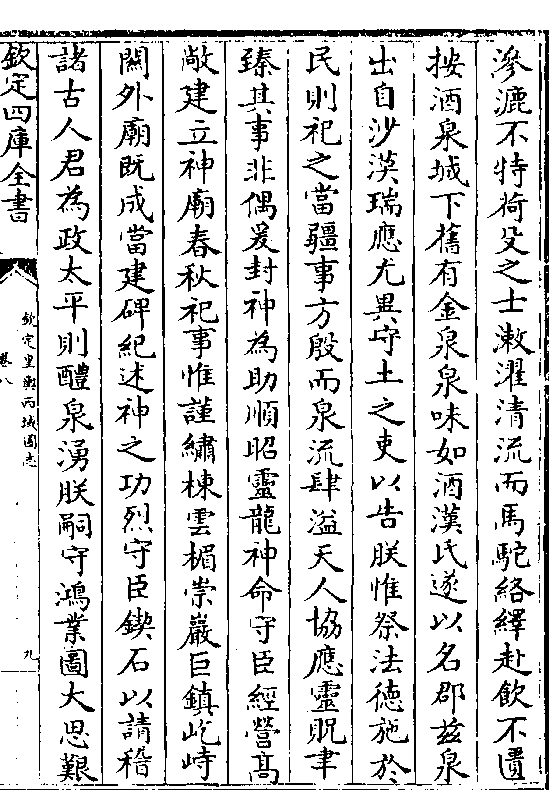 滲漉不特荷殳之士漱濯清流而馬駝絡繹赴飲不匱
按酒泉城下舊有金泉泉味如酒漢氏遂以名郡兹泉
出自沙漠瑞應尤異守土之吏以告朕惟祭法徳施於
民則祀之當疆事方殷而泉流肆溢天人協應靈貺聿
臻其事非偶爰封神為助順昭靈龍神命守臣經營高
敞建立神廟春秋祀事惟謹繡棟雲楣崇巖巨鎮屹峙
闗外廟既成當建碑紀述神之功烈守臣鍥石以請稽
諸古人君為政太平則醴泉湧朕嗣守鴻業圖大思艱
欽定四庫全書
欽定皇輿西域圖志
卷八
九